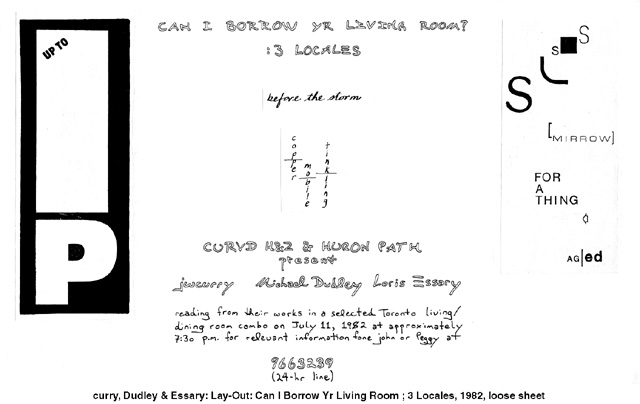 UP TO
P
CAN I BORROW YR LIVING ROOM?
:3 LOCALES
before the storm
copper
mobile
tinkling
CURVD H&Z & HURON PATH
present
jwcurry Michael Dudley Loris Essary
reading from their works in a selected Toronto living/
dining room combo on July 11, 1982 at approximately
7:30 p.m. for relevant information fone john or Peggy at
9663239
(24-hr line)
S
S
S
[MIRROW]
FOR
A
THING
¢
AG|ed
curry, Dudley & Essary: Lay-Out: Can I Borrow Yr Living Room ; 3 Locales, 1982, loose sheet